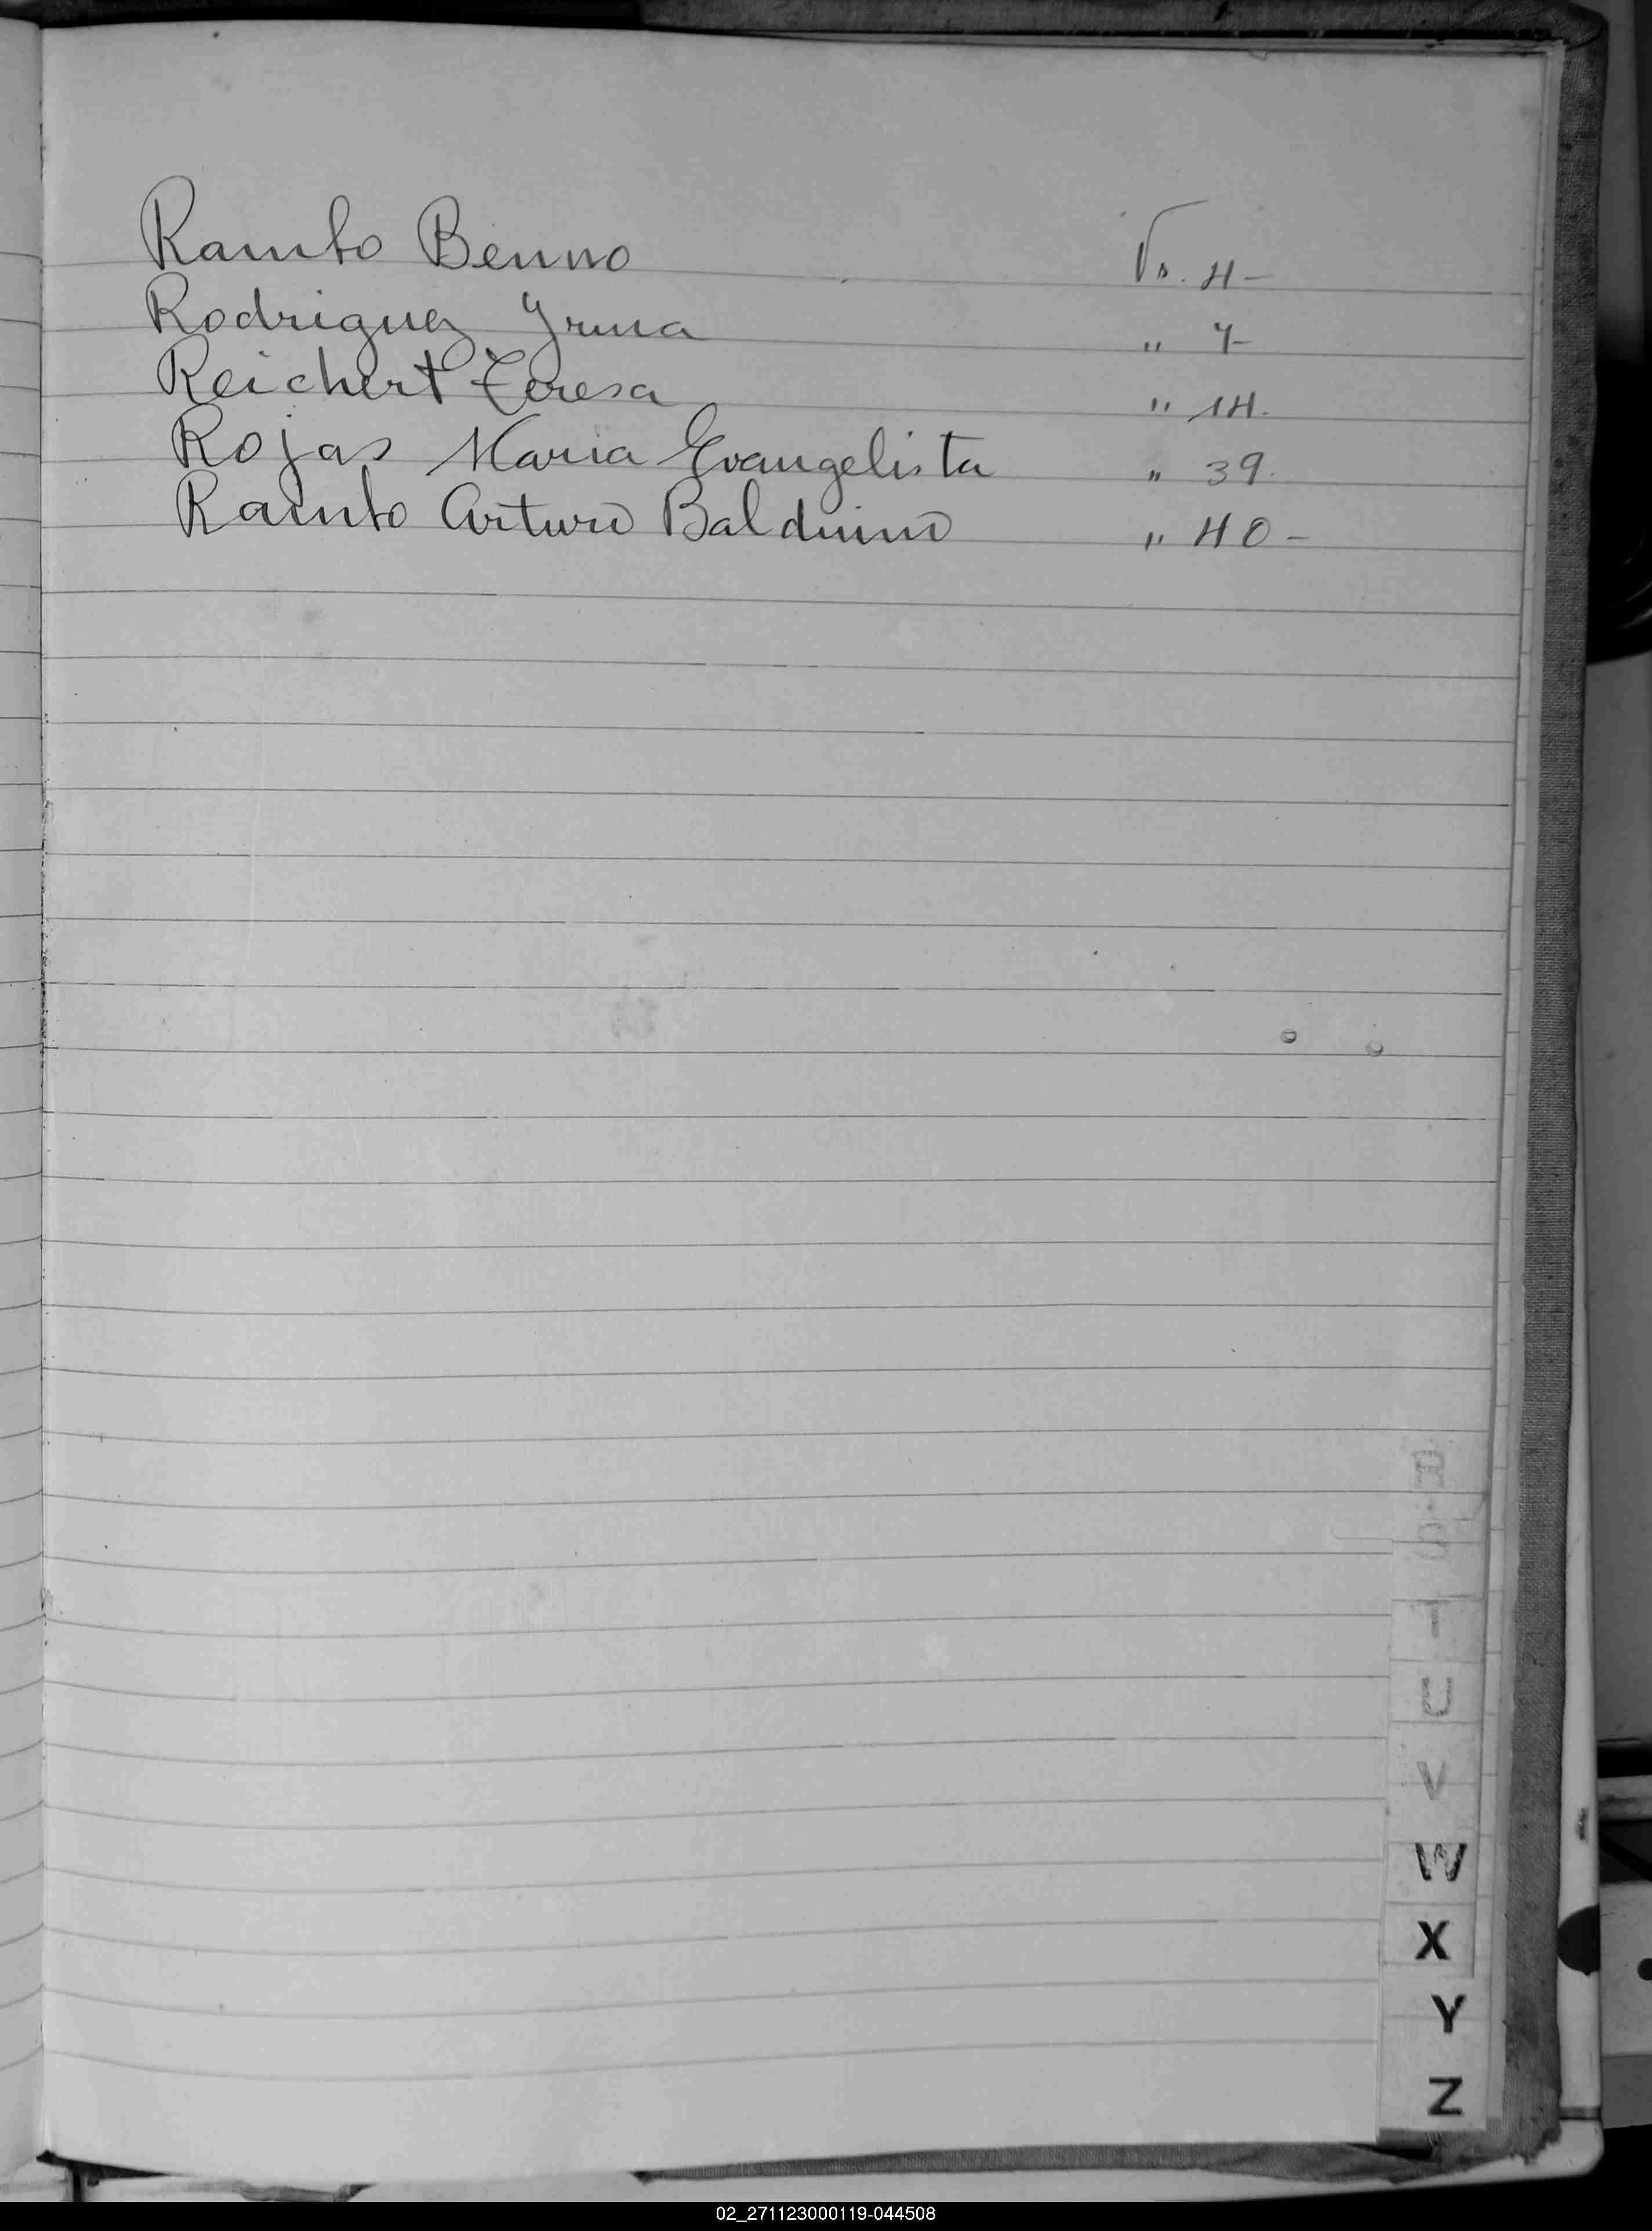 Rambo Benno Vs. 4-
Rodriguez Yrma " 7-
Reichert Teresa " 14.
Rojas Maria Evangelista " 39.
Rambo Arturo Balduino " 40-
R
S
T
U
V
W
X
Y
Z
02_271123000119-044508